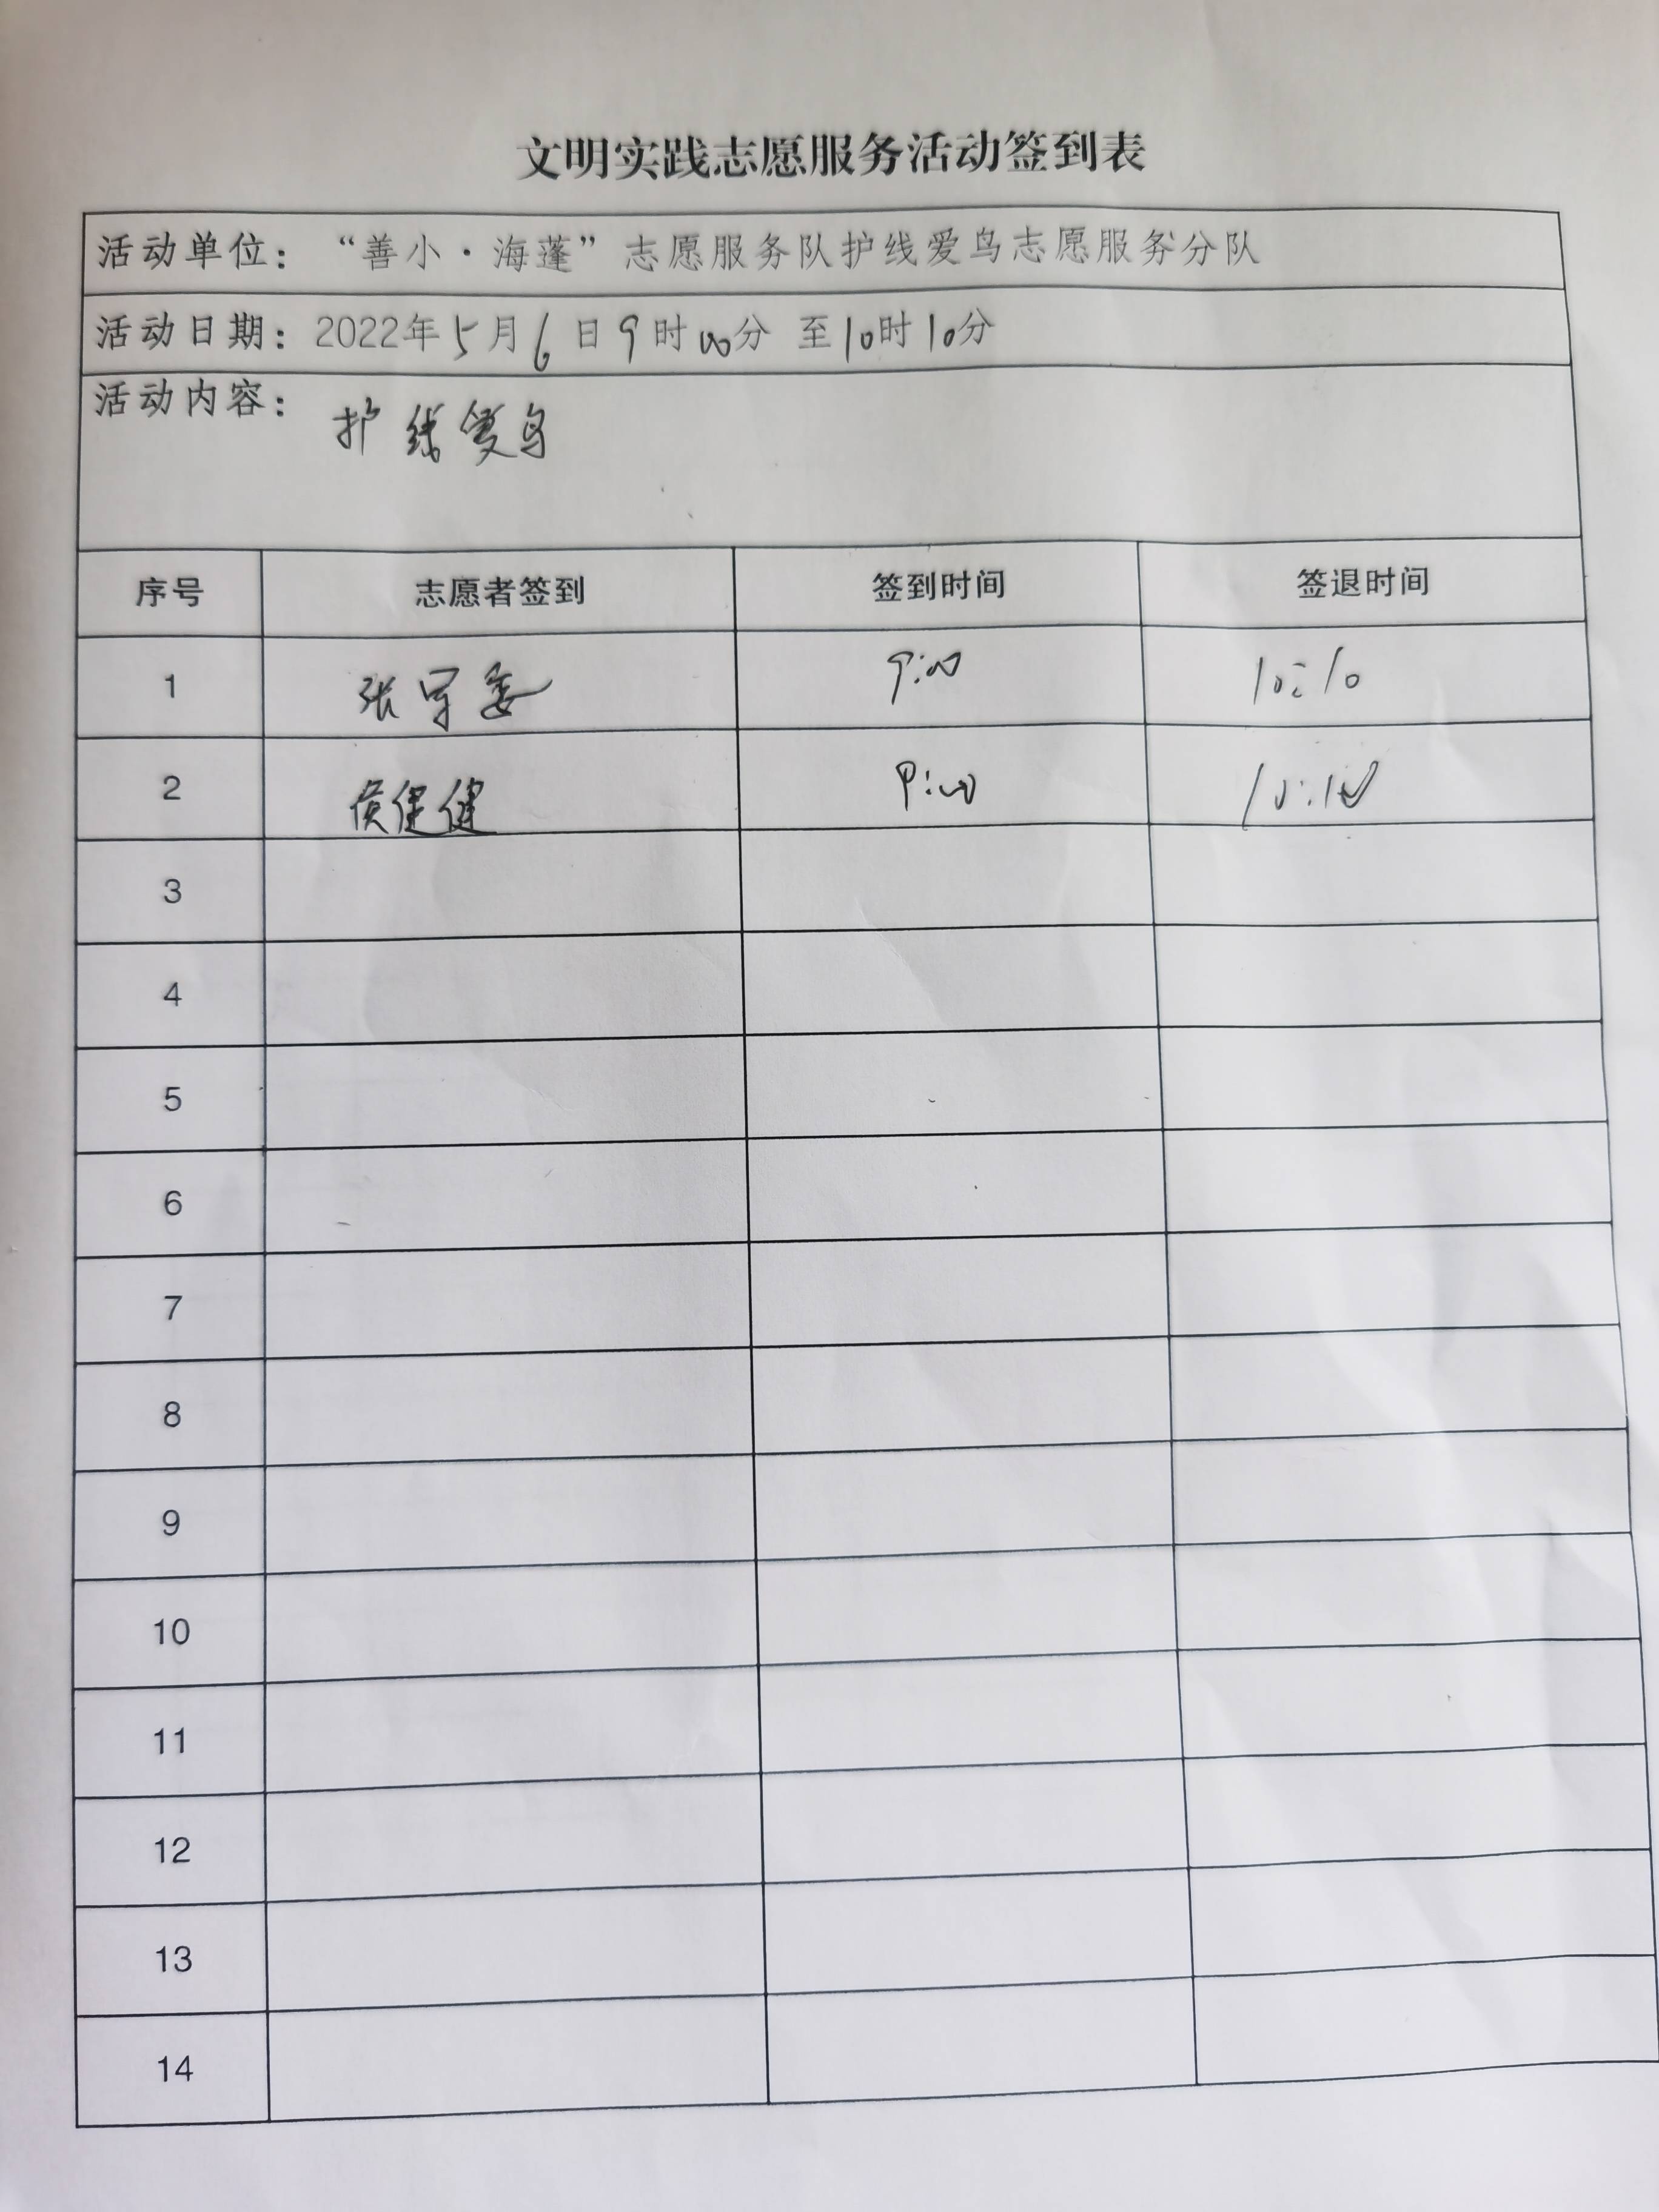 文明实践志愿服务活动签到表
活动单位：“善小·海蓬”志愿服务队护线爱鸟志愿服务分队
活动日期：2022年5月6日9时00分 至10时10分
活动内容：护线爱鸟
序号 志愿者签到 签到时间 签退时间
1 张 9:00 10:10
2 侯健健 9:00 10:10
3
4
5
6
7
8
9
10
11
12
13
14